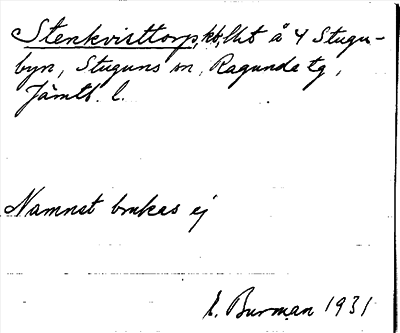 Stenkvisttorp, kb, lht å 4 Stugu-
byn, Stuguns sn, Ragunda tg,
Jämtl. l.
Namnet brukas ej
E. Burman 1931